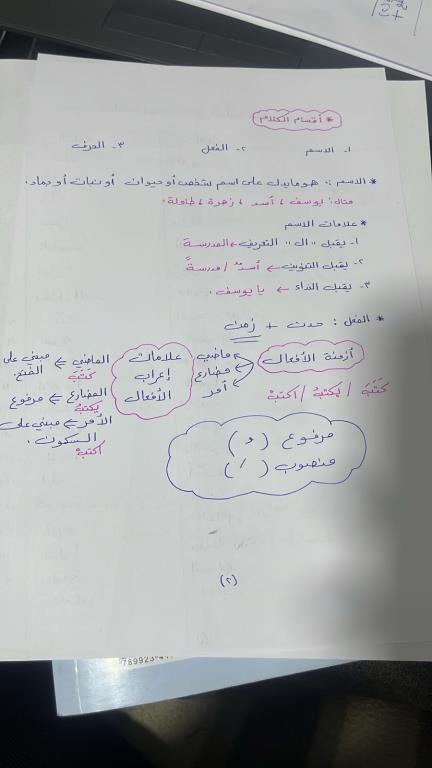 * أقسام الكلام
١- الاسم ٢- الفعل ٣- الحرف
* الاسم : هو ما يدل على اسم لشخص أو حيوان أو نبات أو جماد.
مثال: يوسف ، أسد ، زهرة ، طاولة.
* علامات الاسم
١- يقبل "ال" التعريف ← المدرسة
٢- يقبل التنوين ← أسدٌ / مدرسةً
٣- يقبل النداء ← يا يوسف.
* الفعل : حدث + زمن
أزمنة الأفعال
ماضي
مضارع
أمر
كَتَبَ / يكتبُ / اكتبْ
علامات
إعراب
الأفعال
الماضي ← مبني على
الفتح.
كَتَبَ
المضارع ← مرفوع
يكتبُ
الأمر ← مبني على
السكون.
اكتبْ
مرفوع ( ُ )
منصوب ( َ )
(٢)
789923